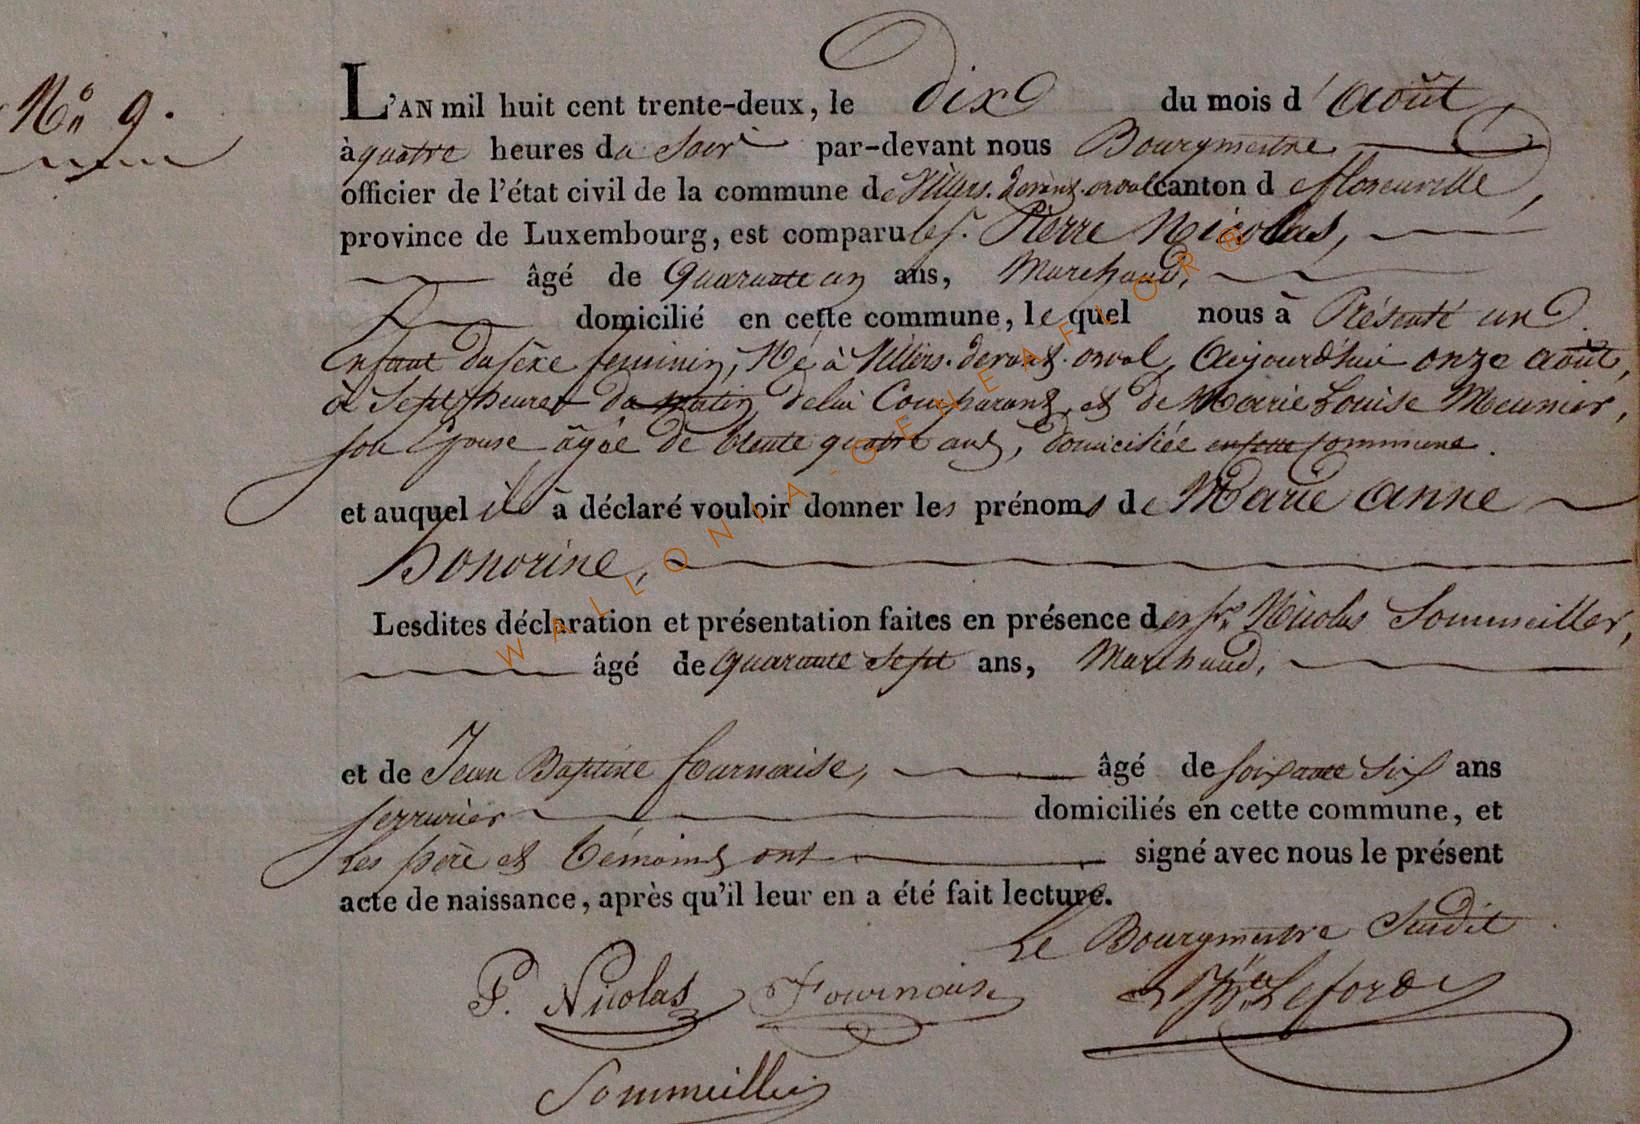 No 9.
L'AN mil huit cent trente-deux, le dix du mois d'août
à quatre heures du soir par-devant nous Bourgmestre
officier de l'état civil de la commune de Villers-devant-orval canton de florenville,
province de Luxembourg, est comparu le sr. Pierre Nicolas,
âgé de Quarante un ans, Marchand,
domicilié en cette commune, le quel nous à Présenté un
Enfant du sèxe feminin, Né à Villers-devant-orval, Aujourd'hui onze août,
à Sept heures du matin, de lui Comparant, et de Marie Louise Meunier,
son Epouse âgée de trente quatre ans, domiciliée en cette commune.
et auquel il à déclaré vouloir donner les prénoms de Marie anne
honorine,
Lesdites déclaration et présentation faites en présence des srs. Nicolas Sommeiller,
âgé de quarante sept ans, Marchand,
et de Jean Baptiste fournaise, âgé de soixante six ans
serrurier domiciliés en cette commune, et
Les père et témoins ont signé avec nous le présent
acte de naissance, après qu'il leur en a été fait lecture.
Le Bourgmestre Susdit
P. Nicolas Fournaise
Sommeiller
WALLONIA-GENEAFLOR®